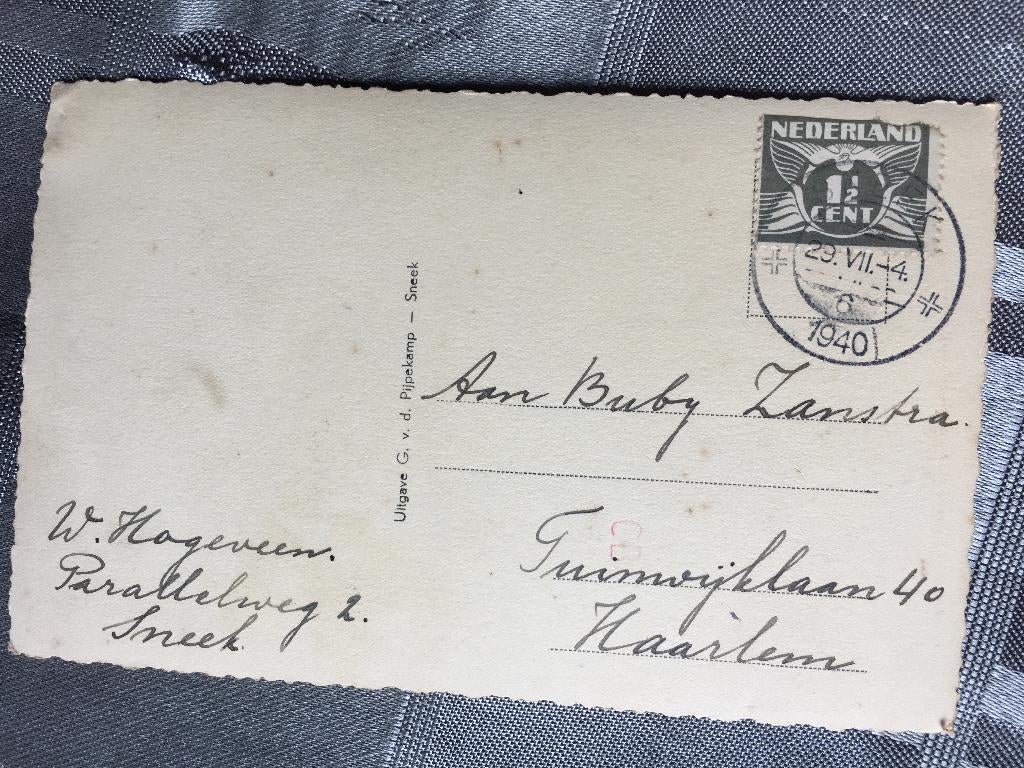 NEDERLAND
1½
CENT
29.VII.-4.
6
1940
Uitgave G. v. d. Pijpekamp – Sneek
Aan Buby Zanstra.
Tuinwijklaan 40
Haarlem
W. Hogeveen.
Parallelweg 2.
Sneek.